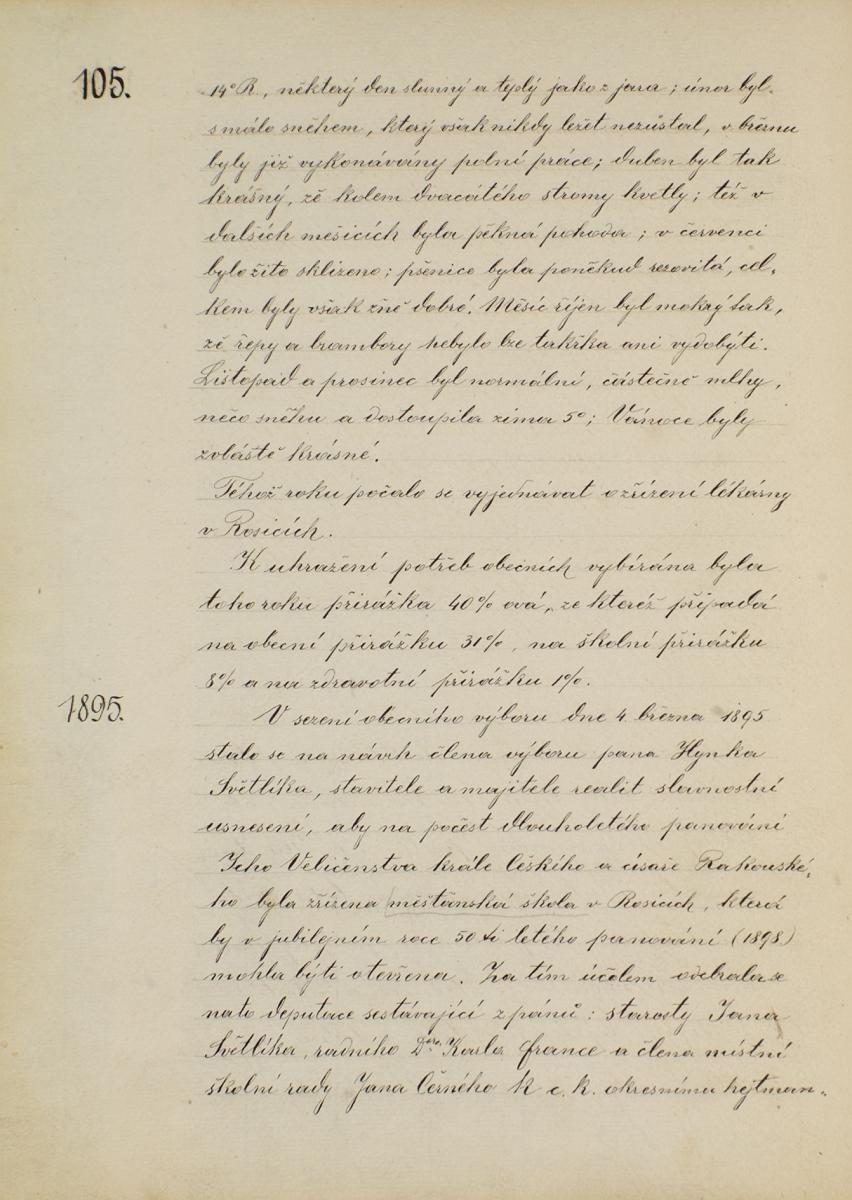 105.
14° R., některý den slunný a teplý jako z jara; únor byl
s málo sněhem, který však nikdy ležet nezůstal, v březnu
byly již vykonávány polní práce; duben byl tak
krásný, zě kolem dvacátého stromy kvetly; též v
dalších mešicích byla pěkná pohoda; v červenci
bylo žito sklizeno; pšenice byla poněkud rezovitá, cel-
kem byly však žně dobré. Měsíc říjen byl mokrý tak,
zě řepy a brambory nebylo lze takřka ani vydobýti.
Listopad a prosinec byl normální, částečně mlhy,
něco sněhu a dostoupila zima 5°; Vánoce byly
zvláště krásné.
Téhož roku počalo se vyjednávat o zřízení lékárny
v Rosicích.
K uhražení potřeb obecních vybírána byla
toho roku přirážka 40% ová, ze kteréž připadá
na obecní přirážku 31%, na školní přirážku
8% a na zdravotní přirážku 1%.
1895.
V sezení obecního výboru dne 4. března 1895
stalo se na návrh člena výboru pana Hynka
Světlíka, stavitele a majitele realit slavnostní
usnesení, aby na počest dlouholetého panování
Jeho Veličenstva krále českého a císaře Rakouské-
ho byla zřízena měšťanská škola v Rosicích, která
by v jubilejním roce 50 ti letého panování (1898)
mohla býti otevřena. Za tím účelem odebrala se
nato deputace sestávající z pánů: starosty Jana
Světlíka, radního Dra. Karla France a člena místní
školní rady Jana Černého k c. k. okresnímu hejtman-